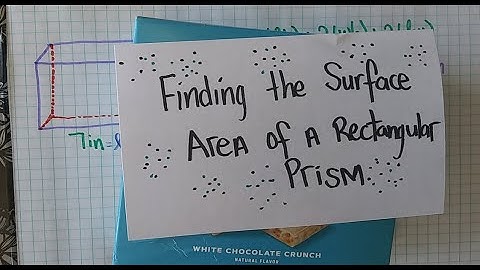 Finding the Surface
Area of a Rectangular
Prism
7in=l
WHITE CHOCOLATE CRUNCH
NATURAL FLAVOR